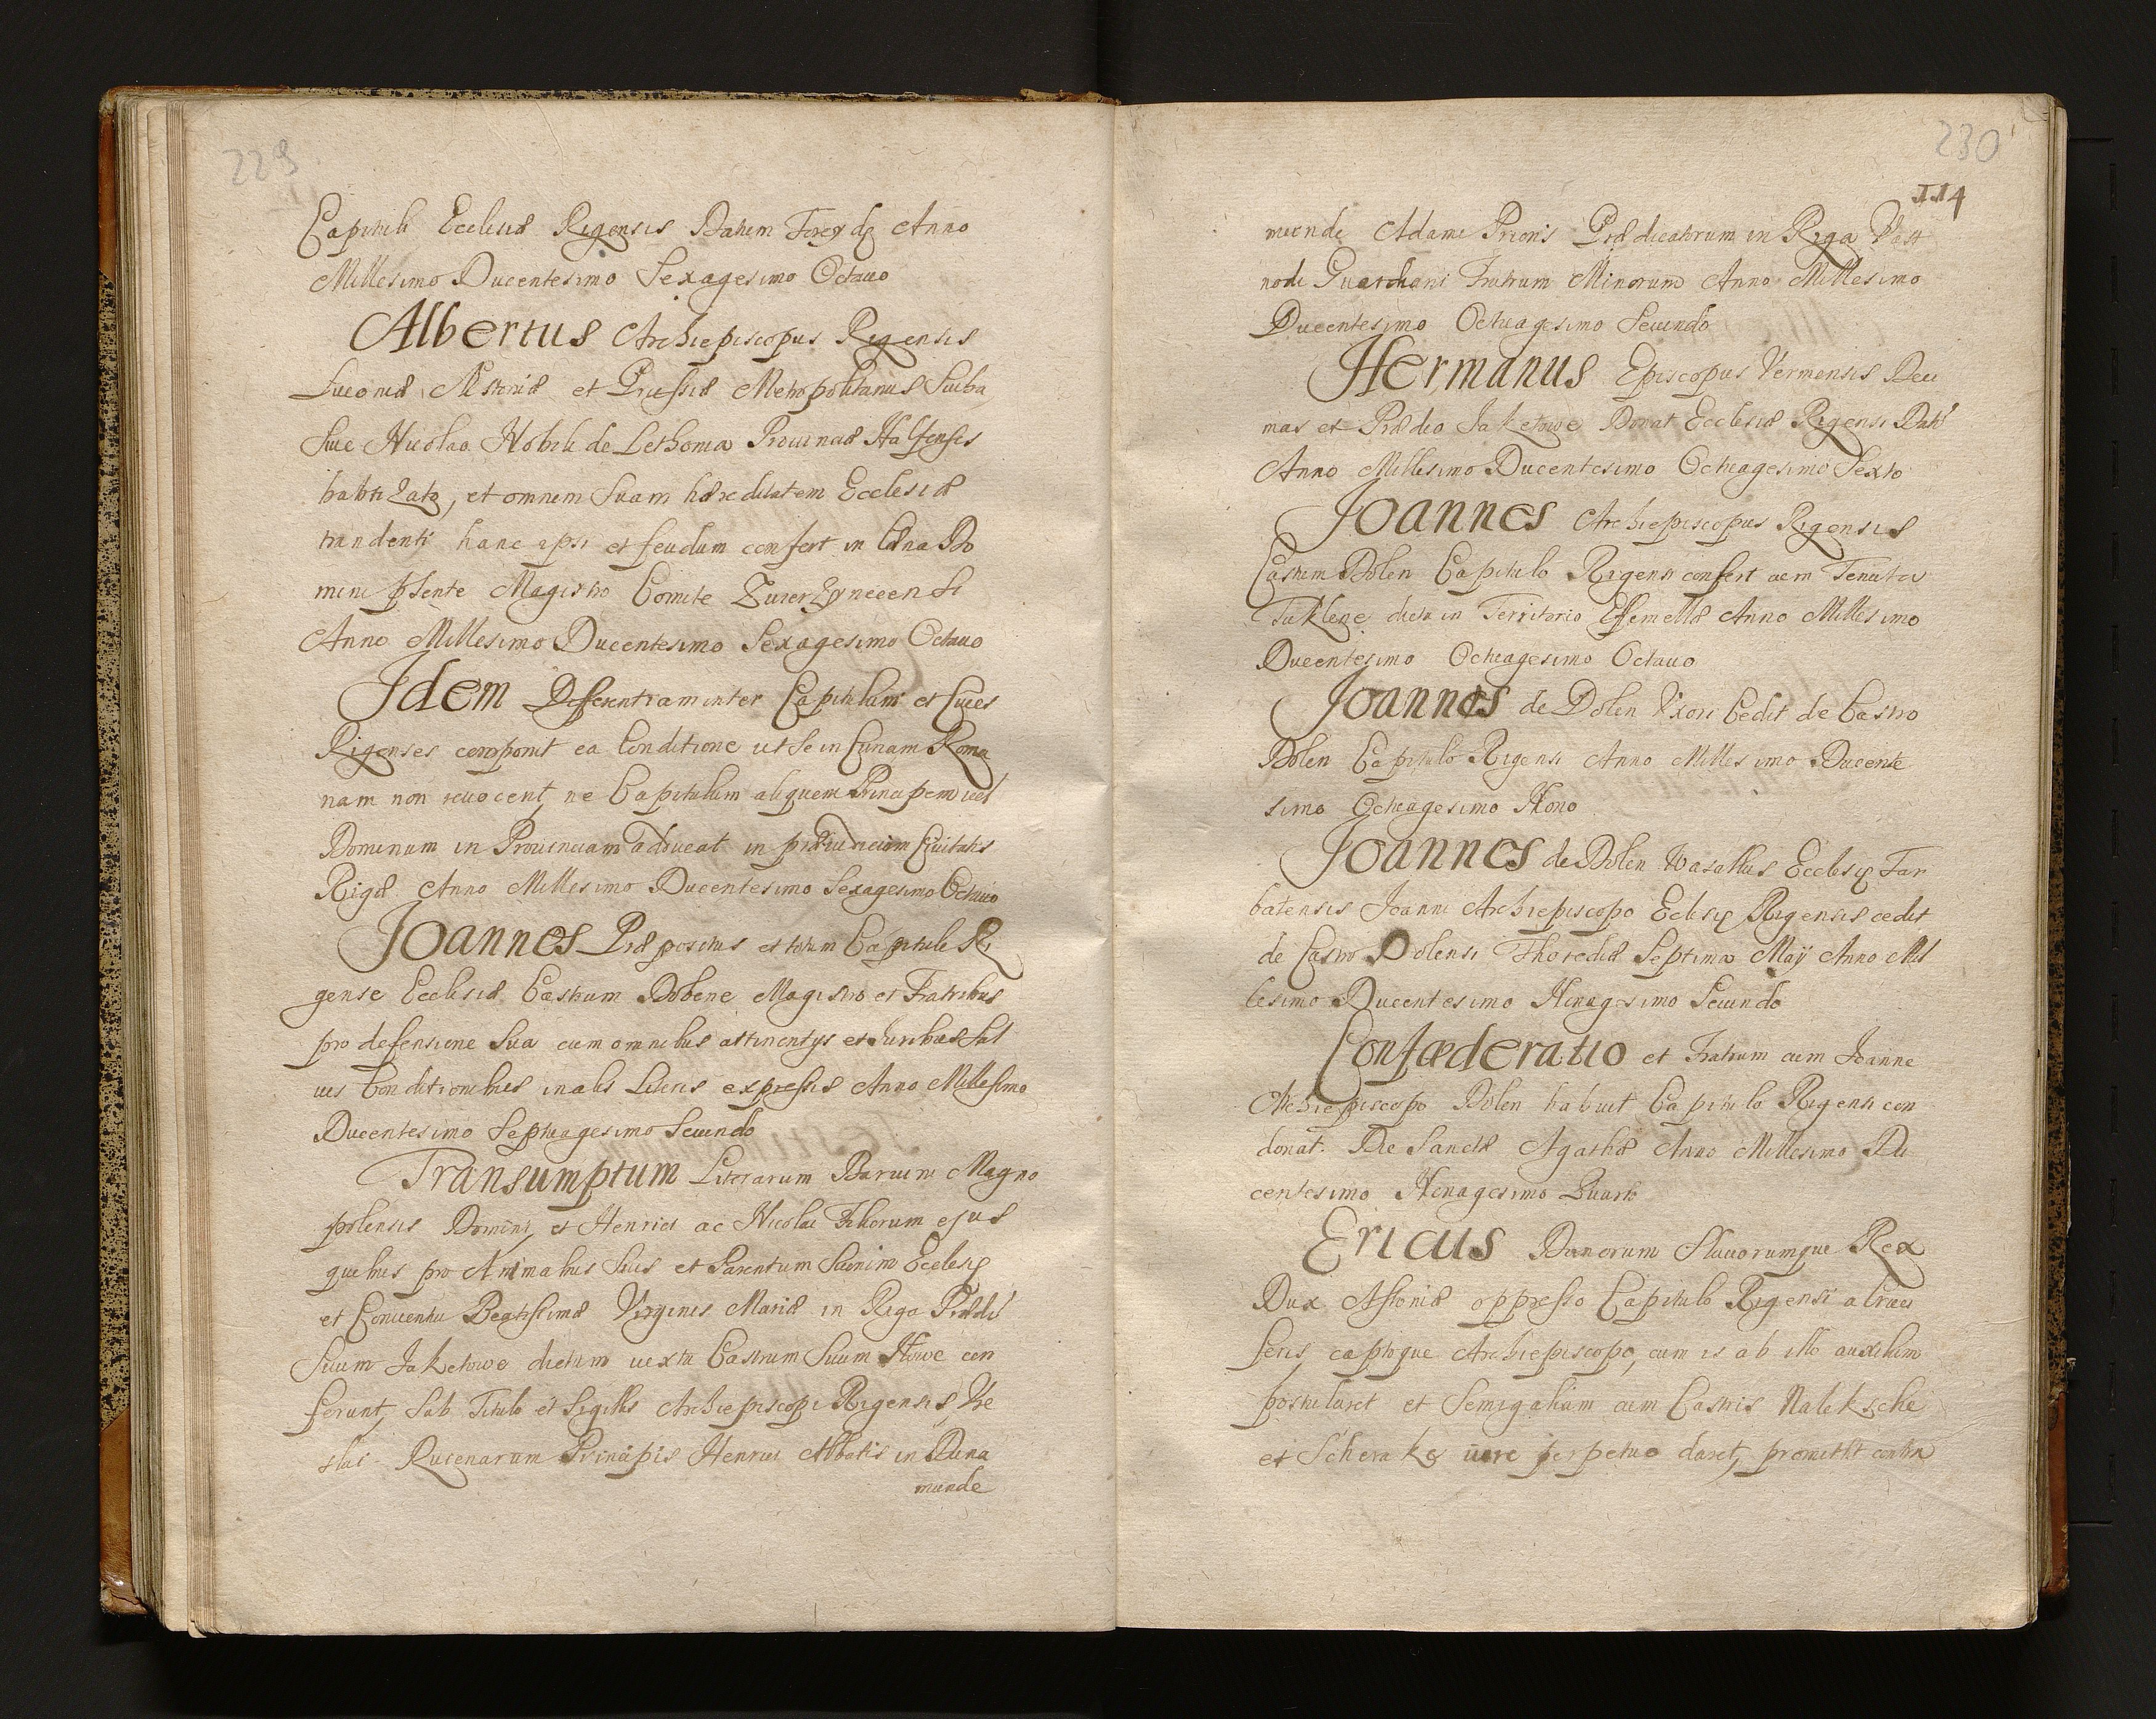 229
Capituli Ecclesiæ Rigensis Datum Toreydę Anno
Millesimo Ducentesimo Sexagesimo Octauo
Albertus Archiepiscopus Rigensis
Liuoniæ Estoniæ et Prussiæ Metropolitanus
Siue Nicolao Nobili de Lethonia Prouinciæ Nalsensis
baptizato, et omnem Suam hæreditatem Ecclesiæ
tradenti hanc ipsi et feudum confert in Cæna Do
mini pſente Magistro Comite
Anno Millesimo Ducentesimo Sexagesimo Octauo
Idem Differentiam inter Capitulum et Ciues
Rigenses componit ea Conditione ut Se in Curiam Roma
nam non reuocent, ne Capitulum aliquem Principem uel
Dominum in Prouinciam adducat in præiudicium Ciuitatis
Rigæ Anno Millesimo Ducentesimo Sexagesimo Octauo
Joannes Præpositus et totum Capitulu Ri
gense Ecclesiæ Castrum Dobene Magistro et Fratribus
pro defensione Sua cum omnibus attinentijs et Juribus Sal
uis Conditionibus in alis Literis expressis Anno Millesimo
Ducentesimo Septuagesimo Secundo
Transumptum Literarum Baruini Magno
polensis Domini, et Henrici ac Nicolai Filiorum ejus
quibus pro Animabus Suis et Parentum Suorum Ecclesię
et Conuentu Beatissimæ Virginis Mariæ in Riga Prædiũ
Suum Jaketowe dictum iuxta Castrum Suum Ilowe con
ferunt, Sub Titulo et Sigillis Archiepiscopi Rigensis, Wie
slai Rucenarum Principis Henrici Abbatis in Duna
munde
230
114
munde Adami Prioris Prædicatorum in Riga
nodi Guardiani Fratrum Minorum Anno Millesimo
Ducentesimo Octuagesimo Secundo
Hermanus Episcopus Vermensis Deci
mas et Prædio Jaketowe Donat Ecclesiæ Rigensi Datũ
Anno Millesimo Ducentesimo Octuagesimo Sexto
Joannes Archiepiscopus Rigensis
Castrum Dolen Capitulo Rigensi confert cum Tenuta
Taklene dicta in Territorio Assemellæ Anno Millesimo
Ducentesimo Octuagesimo Octauo
Joannes de Dolen Uxori Cedit de Castro
Dolen Capitulo Rigensi Anno Millesimo Ducente
simo Octuagesimo Nono
Joannes de Dolen Vasallus Ecclesię Tar
batensis Joanni Archiepiscopo Eclesię Rigensis cedit
de Castro Dolensi Thoredæ Septima Maÿ Anno Mil
lesimo Ducentesimo Nonagesimo Secundo
Confæderatio et Fratrum cum Joanne
Archiepiscopo Dolen habuit Capitulo Rigensi con
donat. Die Sanctæ Agathæ Anno Millesimo Du
centesimo Nonagesimo Quarto
Ericus Danorum Slauorumque Rex
Dux Estoniæ oppresso Capitulo Rigensi a Cruci
feris, captoque Archiepiscopo, cum is ab illo auxilium
postularet et Semigaliam cum Castris Naleksche
et Scherake iure perpetuo daret, promittit contra